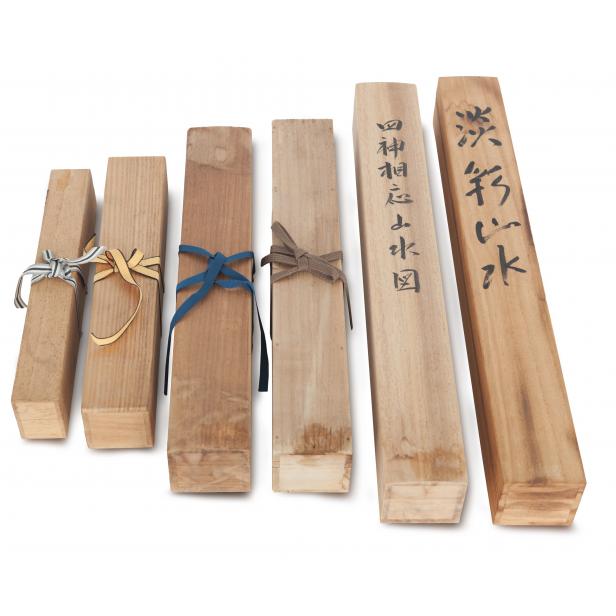 四神相応山水図
淡彩山水